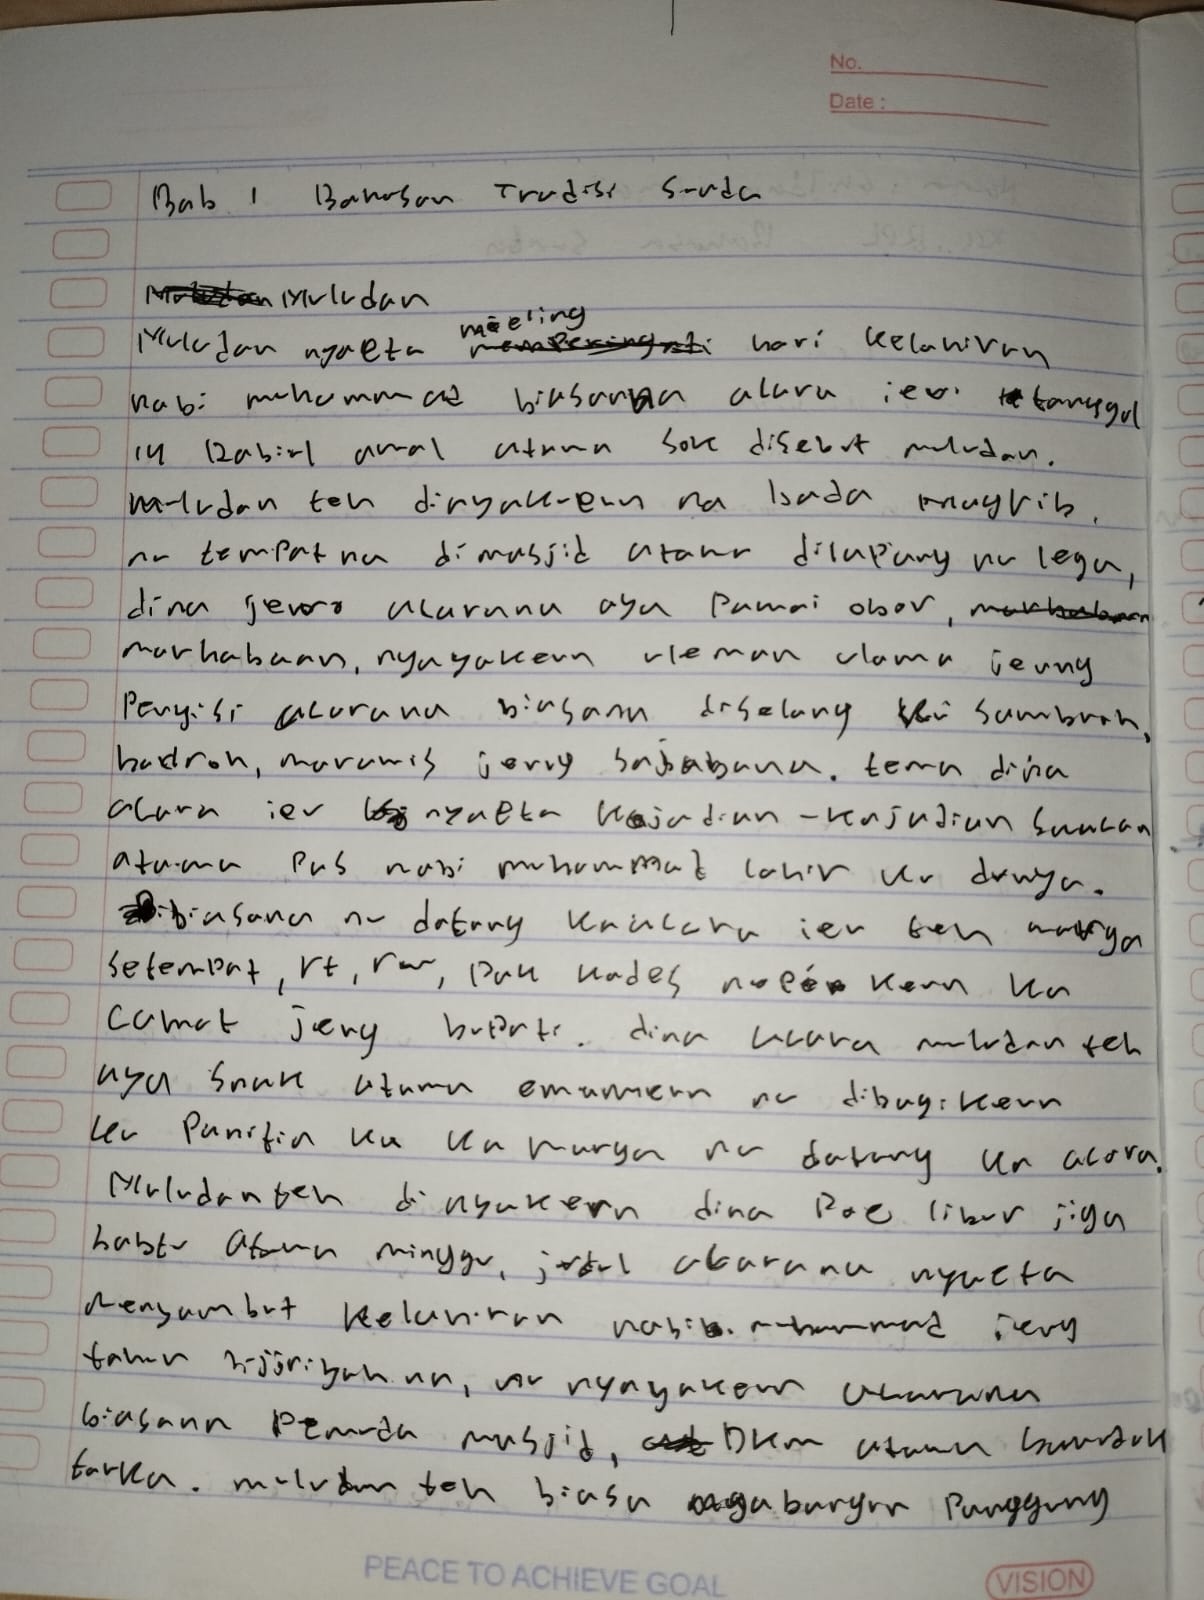 No.
Date :
Bab 1 Bahasan Tradisi Sunda
Muludan
Muludan nyaeta mieling hari kelahiran
nabi muhammad biasana acara ieu tanggal
14 Rabiul awal atawa sok disebut muludan.
muludan teh dinyakeun na bada magrib,
nu tempat na dimasjid atawa dilapang nu lega,
dina jero acarana aya pawai obor,
marhabaan, nyayakeun uleman ulama jeung
Pengisi acarana biasana diselang ku
hadroh, marawis jeung sajabana. tema dina
acara ieu nyaeta kajadian-kajadian saacan
atawa pas nabi muhammad lahir ku dunya.
biasana nu datang kaacara ieu teh warga
setempat, rt, rw, pak kades nepi keun ka
camat jeung bupati. dina acara muludan teh
aya snak atawa emameun nu dibagikeun
ku Panitia ka ka warga nu datang ka acara.
Muludan teh dinyakeun dina Poe libur jiga
sabtu atawa minggu, judul acarana nyaeta
menyambut kelahiran nabi muhammad jeung
tahun hijjriyah na, nu nyayakeun acarana
biasana Pemuda musjid, DKM atawa
tarka. muludan teh biasa ngabangun Panggung
PEACE TO ACHIEVE GOAL
VISION